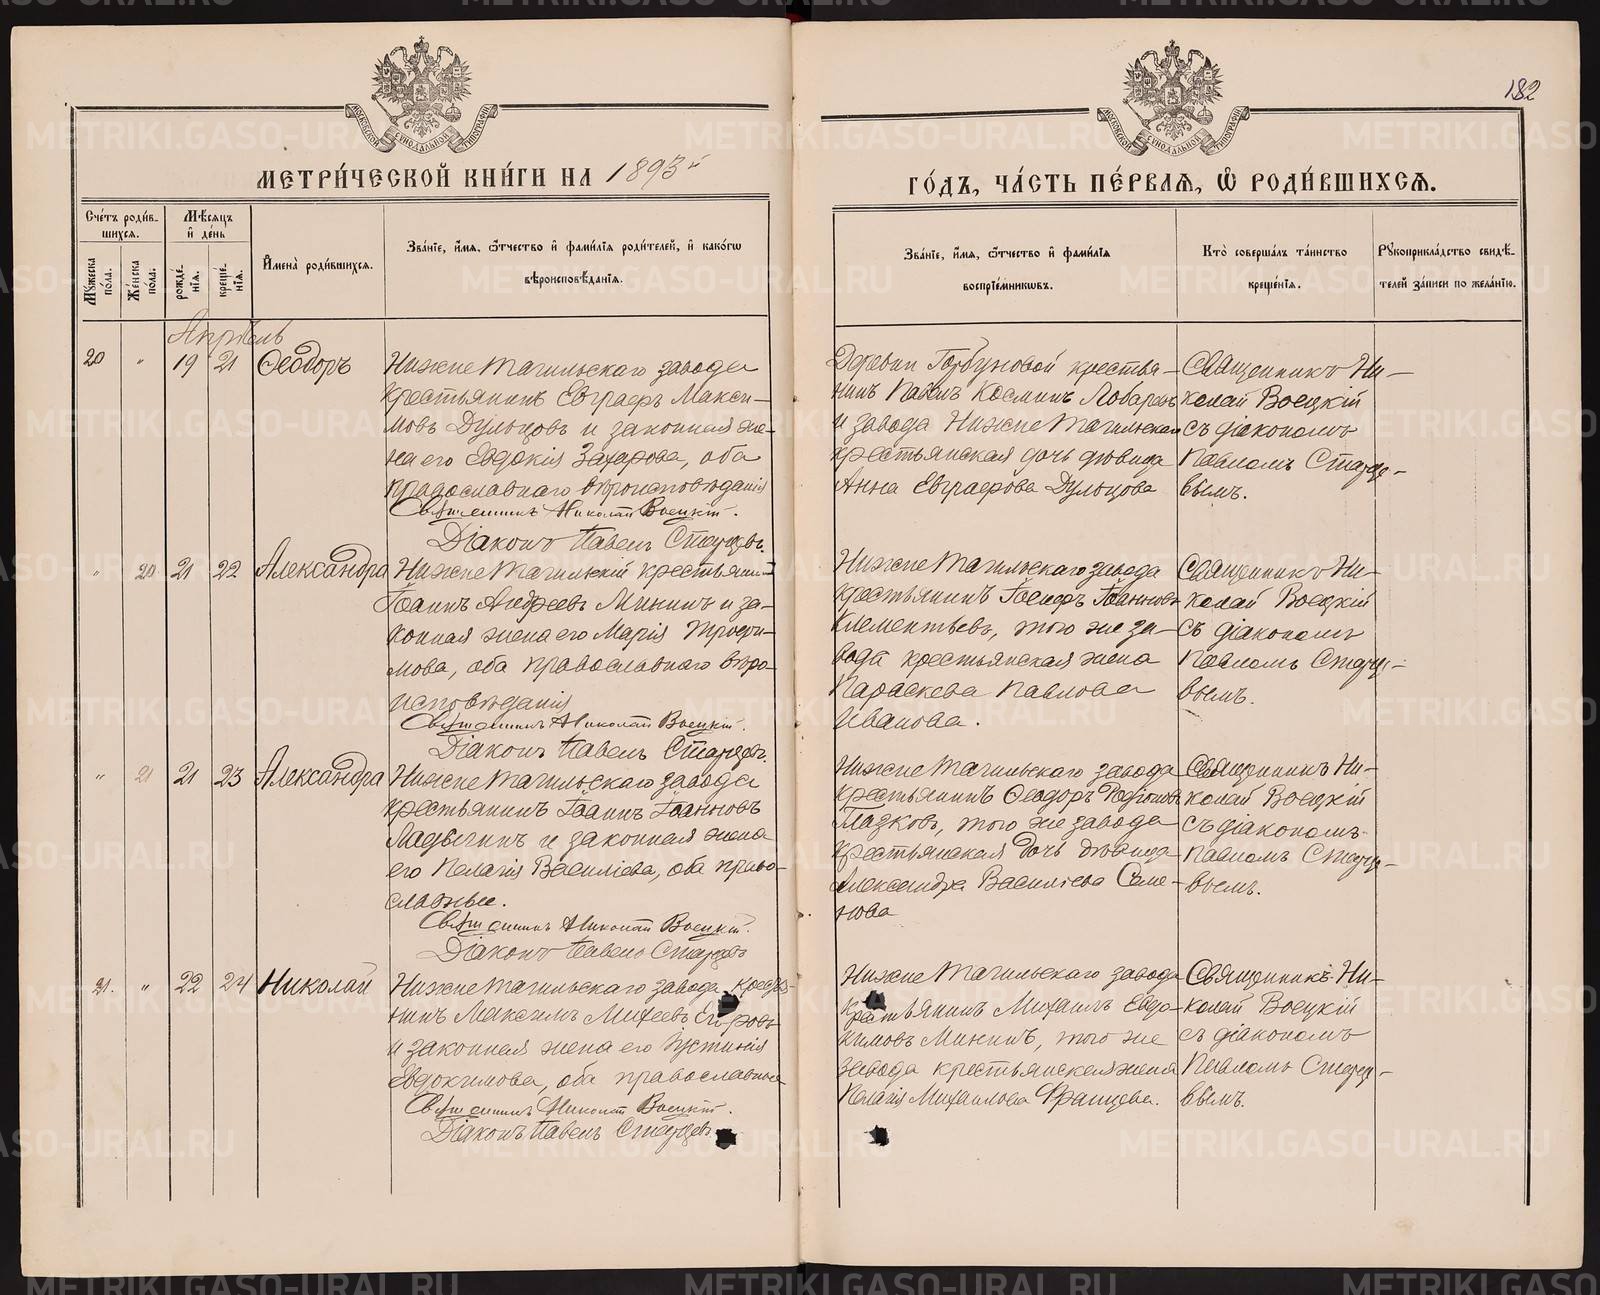 182
МОСКОВСКОЙ СѴНОДАЛЬНОЙ ТИПОГРАФІИ
МОСКОВСКОЙ СѴНОДАЛЬНОЙ ТИПОГРАФІИ
МЕТРИ́ЧЕСКОЙ КНИ́ГИ НА 1893й
ГО́ДЪ, ЧА́СТЬ ПЕ́РВАЯ, Ѿ РОДИ́ВШИХСЯ.
Сче́тъ роди́в-
шихся.
Мѣ́сяцъ
и҆ де́нь
Мꙋ́жеска по́ла.
Же́нска по́ла.
рожде́-
нїя.
креще́-
нїя.
И҆мена̀ роди́вшихся.
Зва́нїе, и҆́мя, ѻ҆́тчество и҆ фами́лїя роди́телей, и҆ како́гѡ
вѣроисповѣ́данїя.
Зва́нїе, и҆́мя, ѻ҆́тчество и҆ фами́лїя
воспрїе́мникѡвъ.
Кто̀ соверша́лъ та́инство
креще́нїя.
Рꙋкоприкла́дство свидѣ́-
телей за́писи по жела́нїю.
Апрѣль
20 " 19 21 Ѳеодоръ
Нижне Тагильскаго завода
крестьянинъ Евграфъ Макси-
мовъ Дульцовъ и законная же-
на его Евдокія Захарова, оба
православнаго вѣроисповѣданія
Священникъ Николай Воецкій.
Діаконъ Павелъ Старцевъ.
Деревни Горбуновой крестья-
нинъ Павелъ Косминъ
и завода Нижне Тагильскаго
крестьянская дочь дѣвица
Анна Евграфова Дульцова
Священникъ Ни-
колай Воецкій
съ діакономъ
Павломъ Старце-
вымъ.
" 20 21 22 Александра
Нижне Тагильскій крестьянинъ
Іоаннъ Андреевъ Мининъ и за-
конная жена его Марія Трофи-
мова, оба православнаго вѣро-
исповѣданія
Священникъ Николай Воецкій.
Діаконъ Павелъ Старцевъ.
Нижне Тагильскаго завода
крестьянинъ Іосифъ Іоанновъ
Клементьевъ, того же за-
вода крестьянская жена
Параскева Павлова
Иванова.
Священникъ Ни-
колай Воецкій
съ діакономъ
Павломъ Старце-
вымъ.
" 21 21 23 Александра
Нижне Тагильскаго завода
крестьянинъ Іоаннъ Іоанновъ
Ладыгинъ и законная жена
его Пелагія Василіева, оба право-
славные.
Священникъ Николай Воецкій.
Діаконъ Павелъ Старцевъ
Нижне Тагильскаго завода
крестьянинъ Ѳеодоръ Родіоновъ
Глазковъ, того же завода
крестьянская дочь дѣвица
Александра Василіева Семе-
нова
Священникъ Ни-
колай Воецкій
съ діакономъ
Павломъ Старце-
вымъ.
21. " 22 24 Николай
Нижне Тагильскаго завода крестья-
нинъ Максимъ Михеевъ Егоровъ
и законная жена его Іустинія
Евдокимова, оба православные
Священникъ Николай Воецкій.
Діаконъ Павелъ Старцевъ.
Нижне Тагильскаго завода
крестьянинъ Михаилъ Евдо-
кимовъ Мининъ, того же
завода крестьянская жена
Пелагія Михаилова
Священникъ Ни-
колай Воецкій
съ діакономъ
Павломъ Старце-
вымъ.
METRIKI.GASO-URAL.RU